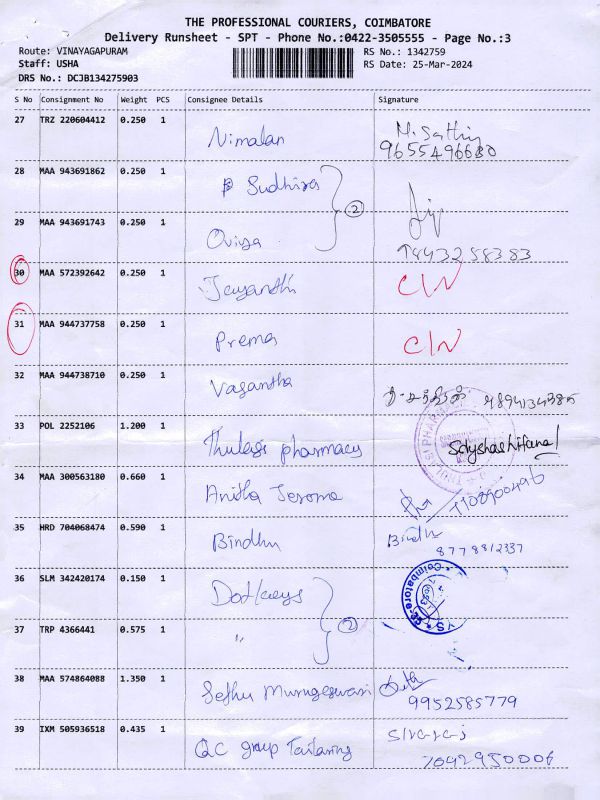 THE PROFESSIONAL COURIERS, COIMBATORE
Delivery Runsheet - SPT - Phone No.:0422-3505555 - Page No.:3
Route: VINAYAGAPURAM RS No.: 1342759
Staff: USHA RS Date: 25-Mar-2024
DRS No.: DCJB134275903
S No Consignment No Weight PCS Consignee Details Signature
27 TRZ 220604412 0.250 1 Nimalan
9655496680
28 MAA 943691862 0.250 1 Sudhira
②
29 MAA 943691743 0.250 1 Oviya
9843258383
30 MAA 572392642 0.250 1 Jayanthi
31 MAA 944737758 0.250 1 Prema
32 MAA 944738710 0.250 1 Vasantha
33 POL 2252106 1.200 1 Thulasi pharmacy
34 MAA 300563180 0.660 1 Anitha Jerome
35 HRD 704068474 0.590 1 Bindhu Bindhu
8778812337
36 SLM 342420174 0.150 1 Coimbatore
②
37 TRP 4366441 0.575 1 "
38 MAA 574864088 1.350 1 Sethu Murugeswari
9952585779
39 IXM 505936518 0.435 1 QC group Tailoring Sivaraj
7092950006